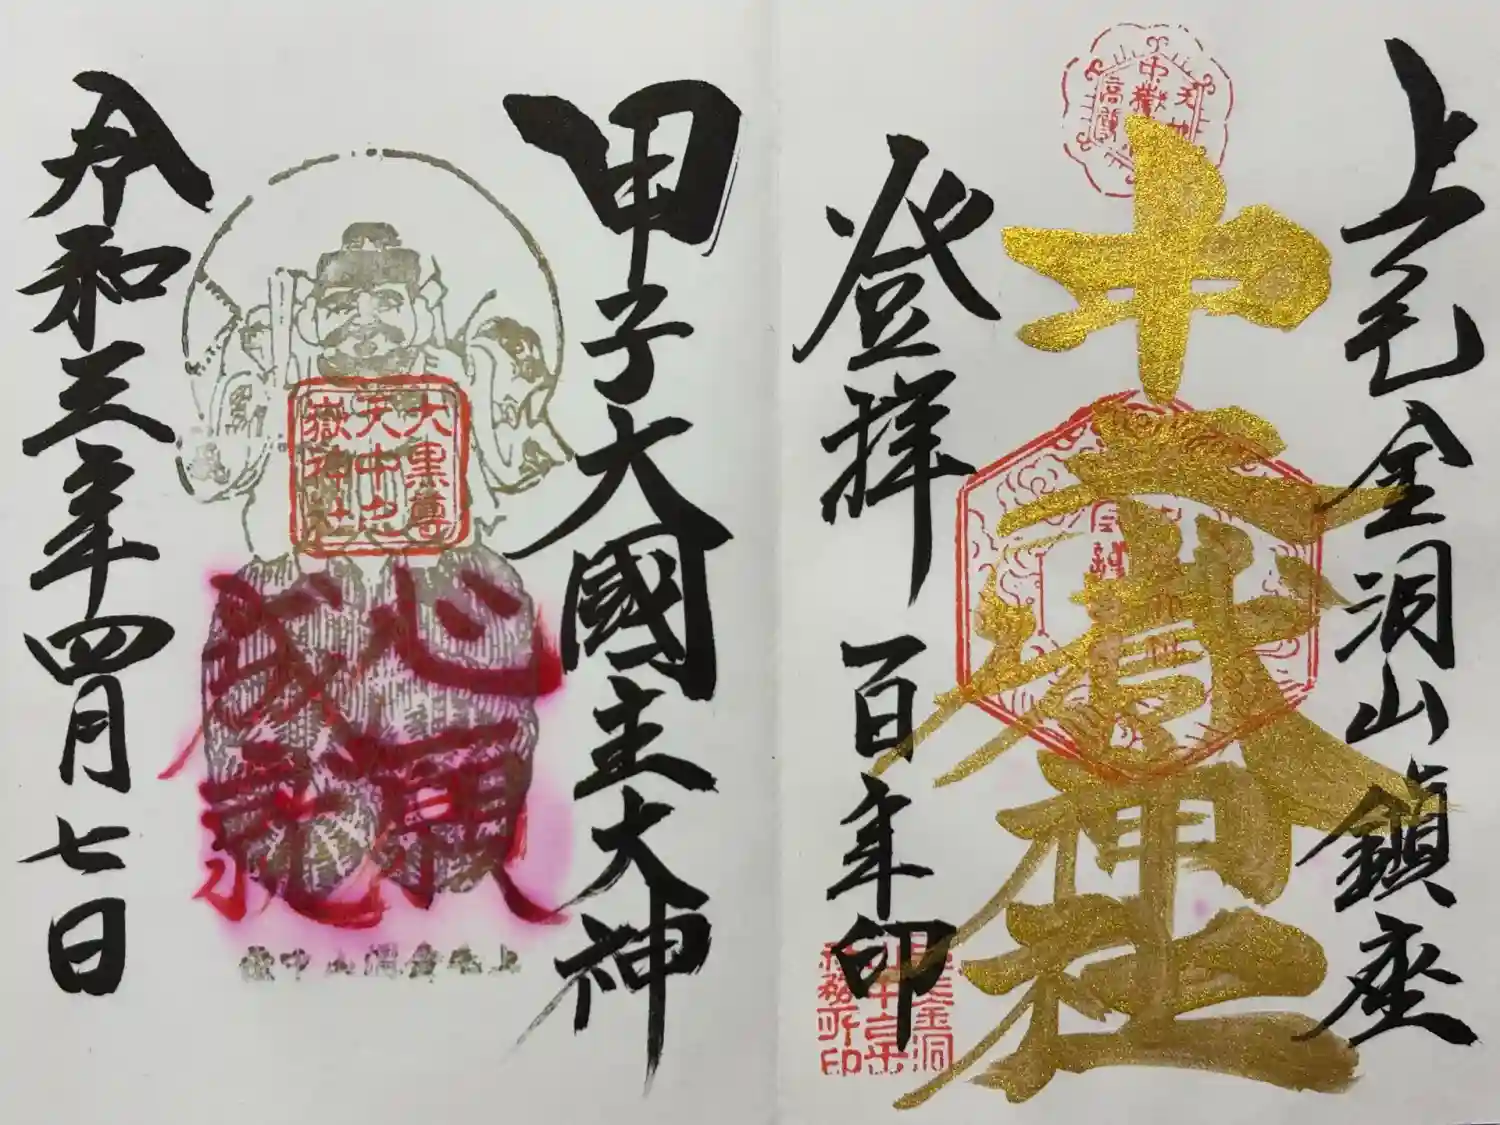 上毛金洞山鎮座
中之嶽神社
登拝
百年印
甲子大國主大神
大黒尊
天中之
嶽神社
心願
成就
上毛金洞山中嶽
令和三年四月七日